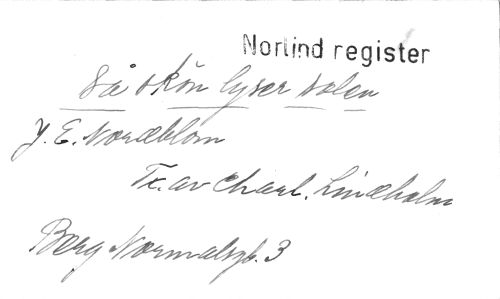 Norlind register
Så skön lyser solen
J. E. Nordblom
Tx. av Charl. Lindholm
Berg Normalsgb. 3